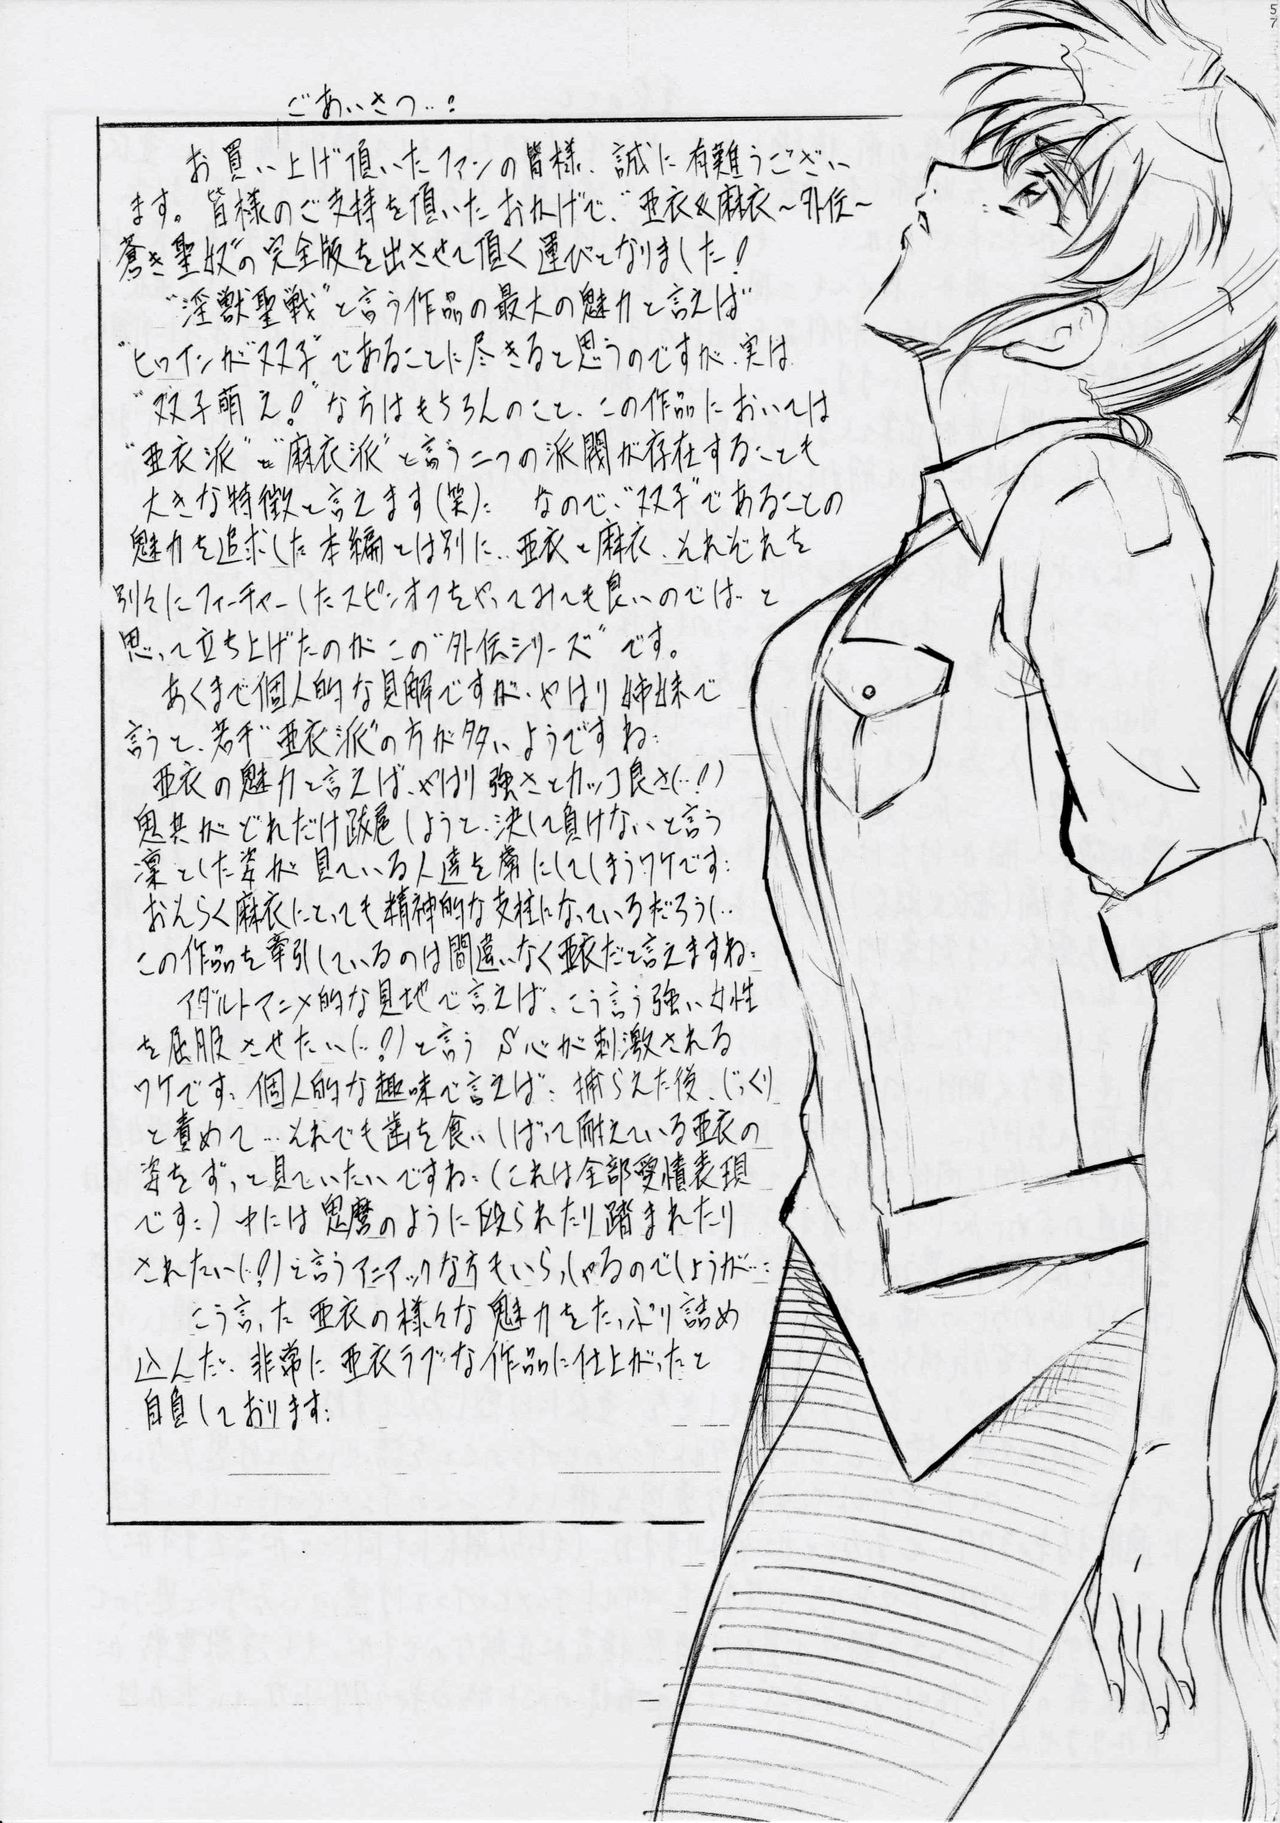 57
ごあいさつ‥!
お買い上げ頂いたファンの皆様、誠に有難うござい
ます。皆様のご支持を頂いたおかげで、“亜衣&麻衣～外伝～
蒼き聖奴”の完全版を出させて頂く運びとなりました!
“淫獣聖戦”と言う作品の最大の魅力と言えば
“ヒロインが“双子”であることに尽きると思うのですが、実は
“双子萌え!”な方はもちろんのこと、この作品においては
“亜衣派”と“麻衣派”と言う二つの派閥が存在することも
大きな特徴と言えます(笑)‥ なので、“双子”であることの
魅力を追求した本編とは別に‥亜衣と麻衣、それぞれを
別々にフィーチャーしたスピンオフをやってみても良いのでは‥と
思って立ち上げたのがこの“外伝シリーズ”です。
あくまで個人的な見解ですが、やはり姉妹で
言うと、若干“亜衣派”の方が多いようですね‥
亜衣の魅力と言えば、やはり強さとカッコ良さ(‥!?)
鬼共がどれだけ跋扈しようと、決して負けないと言う
凛とした姿が見ている人達を虜にしてしまうワケです‥
おそらく麻衣にとっても精神的な支柱になっているだろうし‥
この作品を牽引しているのは間違いなく亜衣だと言えますね‥
アダルトアニメ的な見地で言えば、こう言う強い女性
を屈服させたい(‥!?)と言うS心が刺激される
ワケです‥個人的な趣味で言えば‥捕らえた後、じっくり
と責めて‥それでも歯を食いしばって耐えている亜衣の
姿をずっと見ていたいですね‥(これは全部愛情表現
です‥)中には鬼麿のように殴られたり踏まれたり
されたい(‥!?)と言うマニアックな方もいらっしゃるのでしょうが‥
こう言った亜衣の様々な魅力をたっぷり詰め
込んだ、非常に亜衣ラブな作品に仕上がったと
自負しております‥